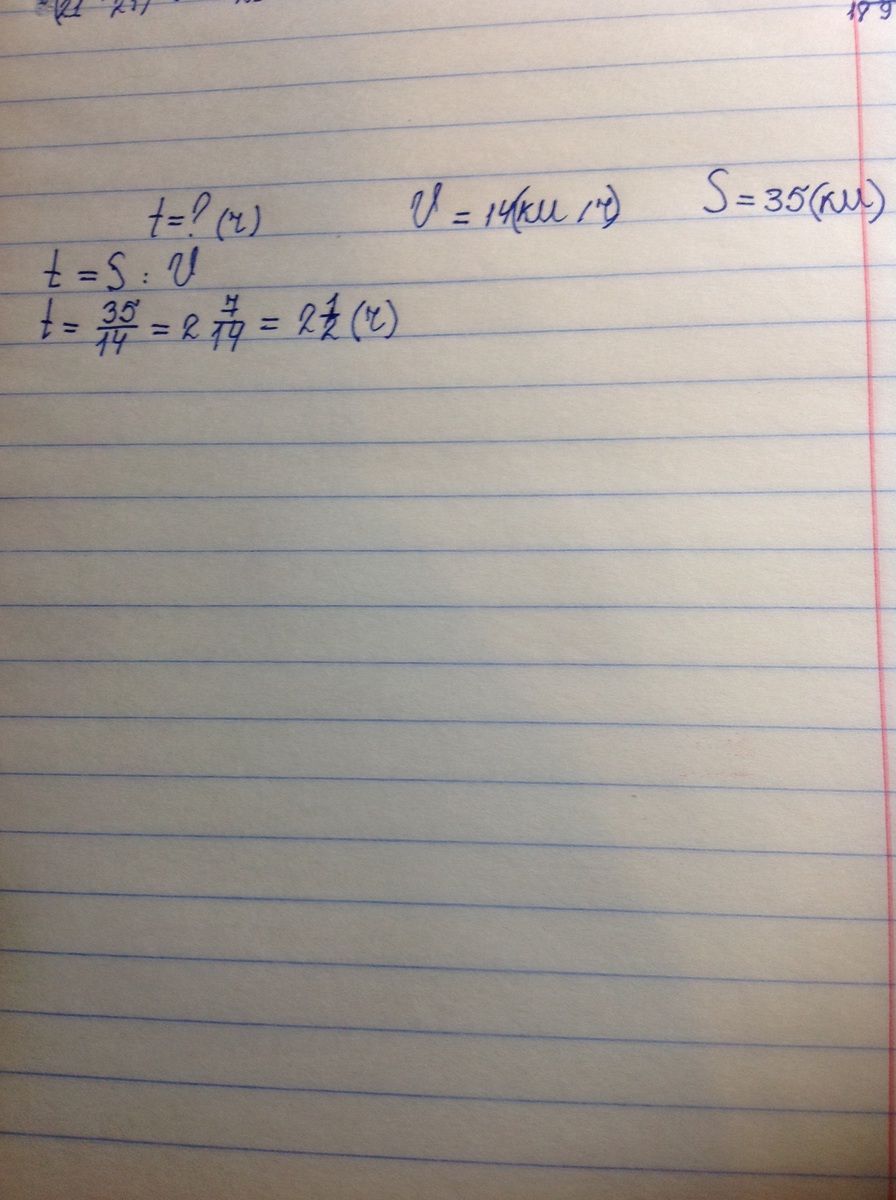 t=? (ч) V = 14(км/ч) S = 35(км)
t = S : V
t = 35/14 = 2 7/14 = 2 1/2 (ч)